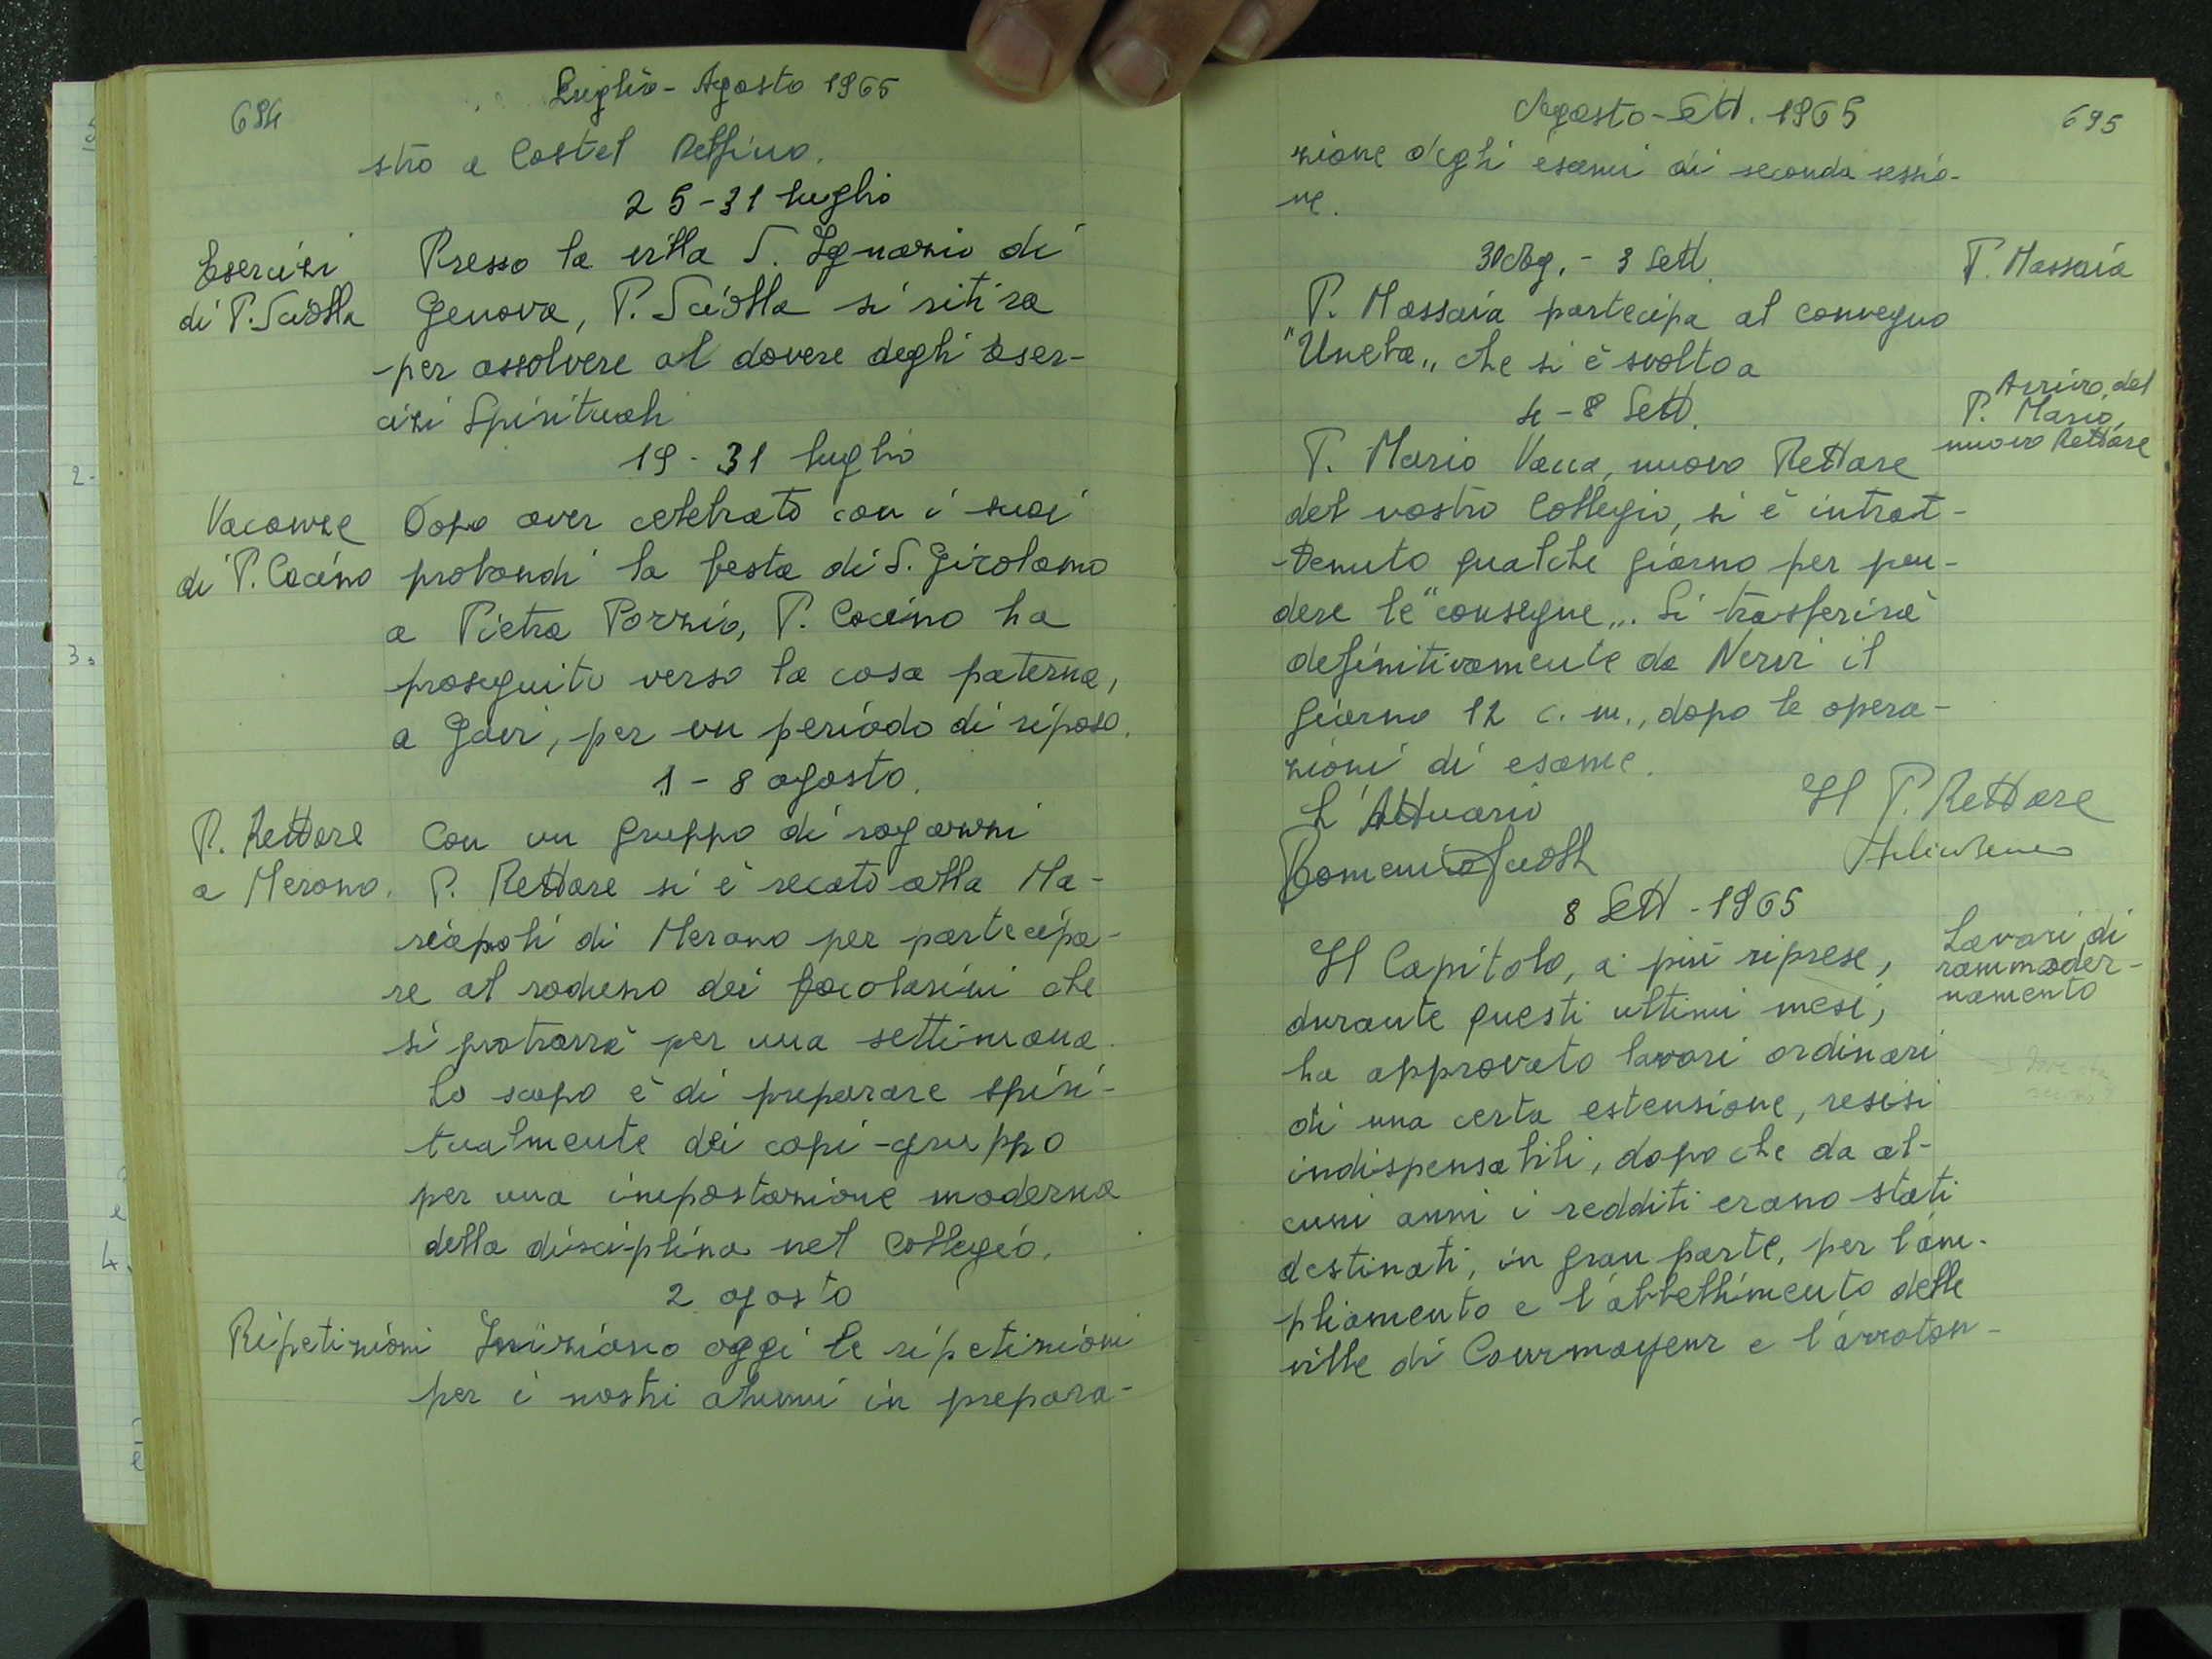 694
Luglio - Agosto 1965
stro a Castel Delfino.
25-31 luglio
Esercizi
di P. Sciolla
Presso la villa S. Ignazio di
Genova, P. Sciolla si ritira
per assolvere al dovere degli Eser-
cizi Spirituali
19 - 31 luglio
Vacanze
di P. Cocino
Dopo aver celebrato con i suoi
probandi la festa di S. Girolamo
a Pietra Porzio, P. Cocino ha
proseguito verso la casa paterna,
a Gavi, per un periodo di riposo.
1 - 8 agosto.
P. Rettore
a Merano.
Con un gruppo di ragazzi
P. Rettore si è recato alla Ma-
riapoli di Merano per partecipa-
re al raduno dei focolarini che
si protrarrà per una settimana.
Lo scopo è di preparare spiri-
tualmente dei capi-gruppo
per una impostazione moderna
della disciplina nel Collegio.
2 agosto
Ripetizioni
Iniziano oggi le ripetizioni
per i nostri alunni in prepara-
Agosto - Sett. 1965
695
zione degli esami di seconda sessio-
ne.
30 Ag. - 3 Sett.
P. Massaia
P. Massaia partecipa al convegno
"Uneba" che si è svolto a
4 - 8 Sett.
Arrivo del
P. Mario,
nuovo Rettore
P. Mario Vacca, nuovo Rettore
del nostro Collegio, si è intrat-
tenuto qualche giorno per pren-
dere le "consegne". Si trasferirà
definitivamente da Nervi il
giorno 12 c. m., dopo le opera-
zioni di esame.
L'Attuario
Il P. Rettore
8 Sett - 1965
Lavori di
rammoder-
namento
Il Capitolo, a più riprese,
durante questi ultimi mesi,
ha approvato lavori ordinari
di una certa estensione, resisi
indispensabili, dopo che da al-
cuni anni i redditi erano stati
destinati, in gran parte, per l'am-
pliamento e l'abbellimento delle
ville di Courmayeur e l'arroton-